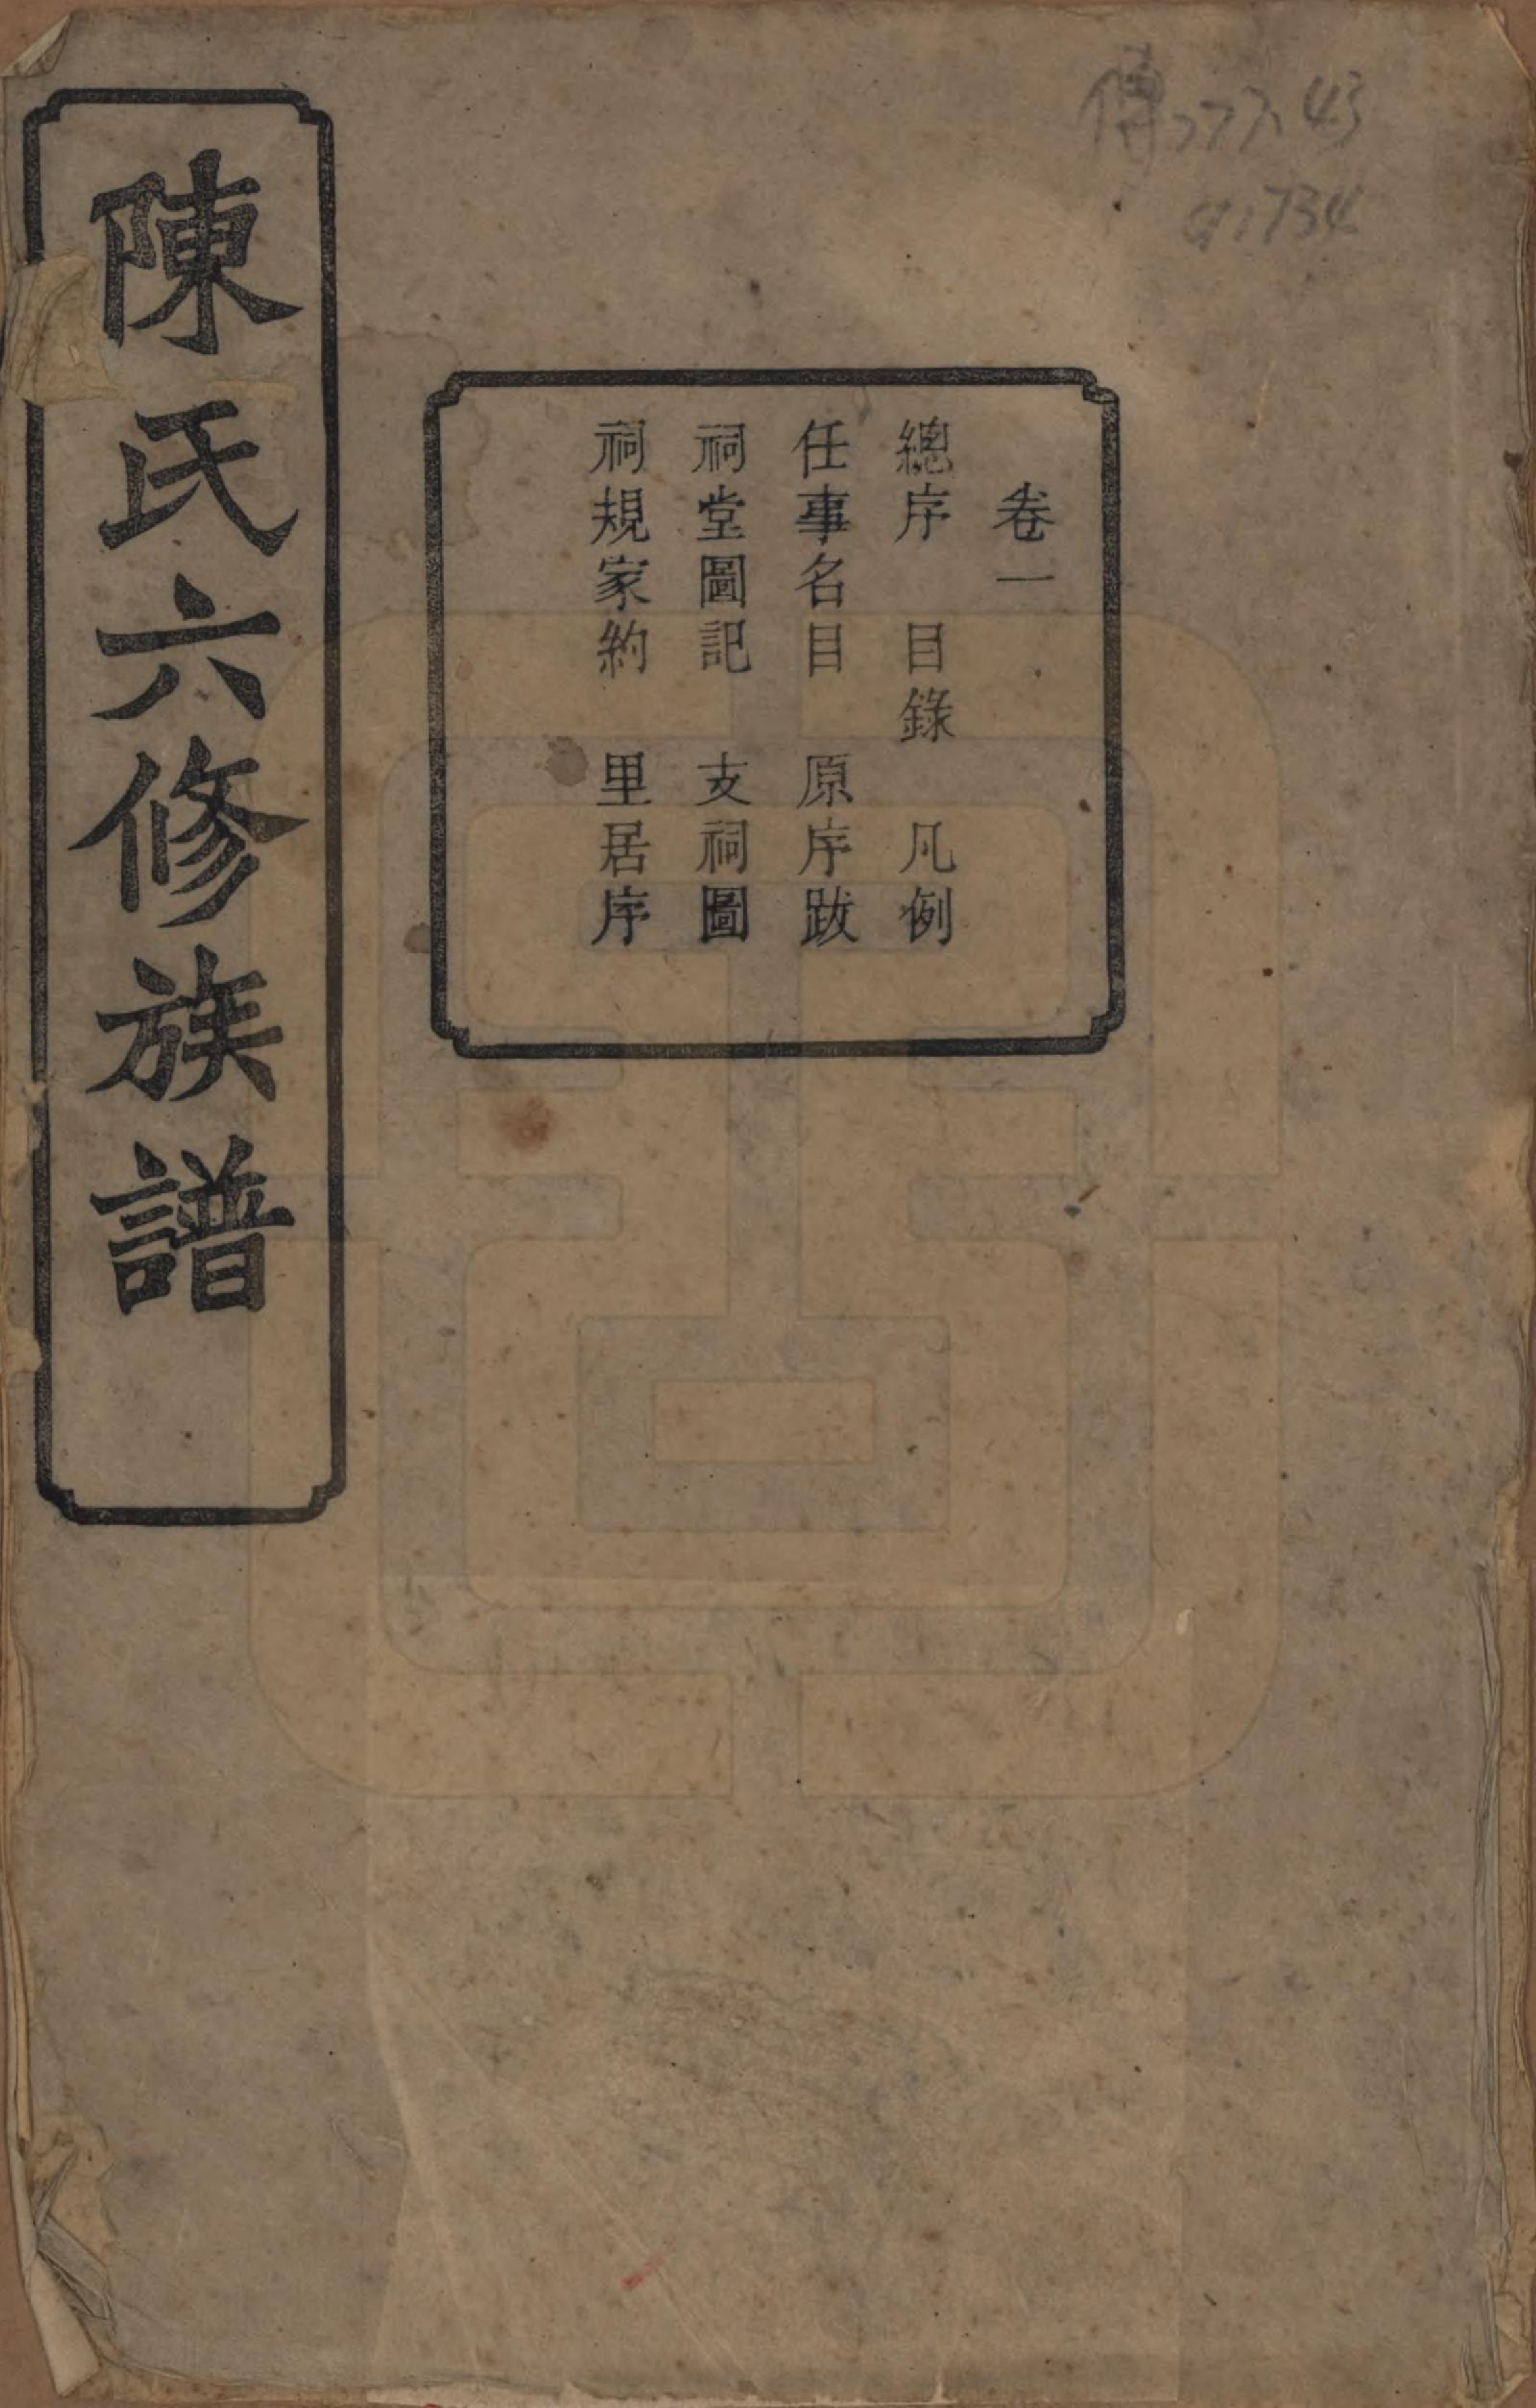 傳277.43
陳氏六修族譜
卷一
總序　目錄　凡例
任事名目　原序跋
祠堂圖記　支祠圖
祠規家約　里居序